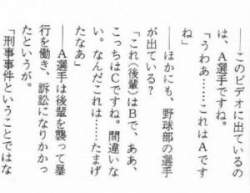 ――このビデオに出ているの
は、A選手ですね。
「うわあ……これはAです
ね」
――ほかにも、野球部の選手
が出ている?
「これ(後輩)はBで、ああ、
こっちはCですね。間違いな
い。なんだこれは……たまげ
たなあ」
――A選手は後輩を襲って暴
行を働き、訴訟になりかかっ
たというが。
「刑事事件ということではな